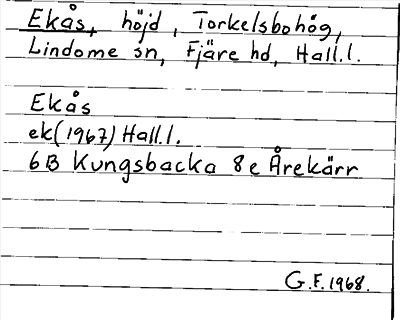 Ekås, höjd, Torkelsbohög,
Lindome sn, Fjäre hd, Hall.l.
Ekås
ek(1967) Hall.l.
6B Kungsbacka 8e Årekärr
G.F.1968.